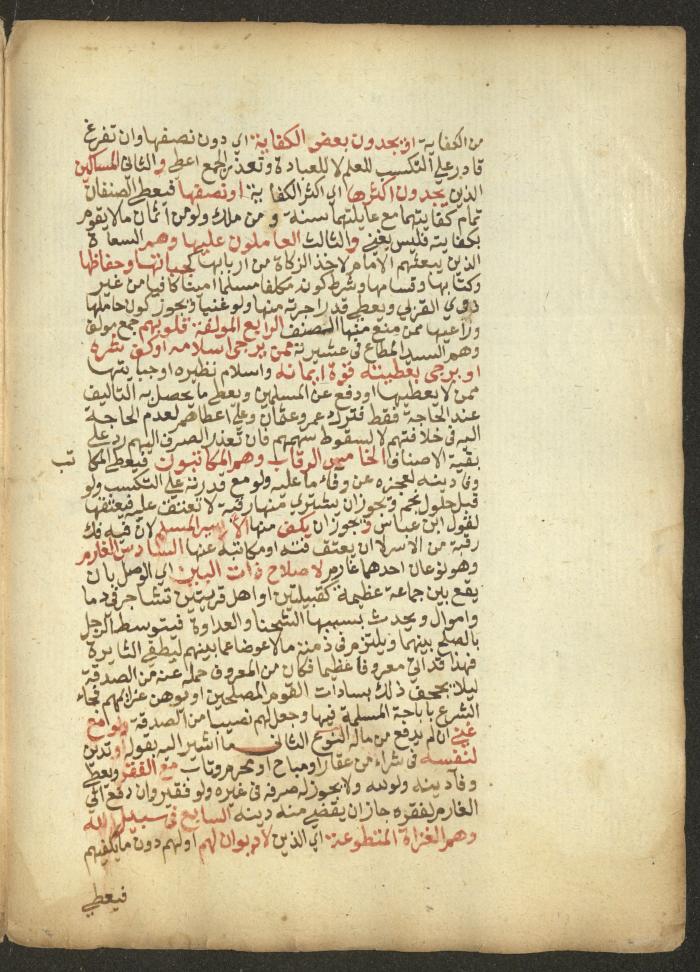 من الكفاية او يجدون بعض الكفاية اي دون نصفها وان تفرغ
قادر على التكسب للعلم لا للعبادة وتعذر الجمع اعطي والثاني المساكين
الذين يجدون اكثرها اي اكثر الكفاية او نصفها فيعطى الصنفان
تمام كفايتهما مع عايلتهما سنة ومن ملك ولو من اثمان ما لا يقوم
بكفايته فليس بغني والثالث العاملون عليها وهم السعاة
الذين يبعثهم الامام لاخذ الزكاة من اربابها كجباتها وحفاظها
وكتابها وقسامها وشرط كونه مكلفا مسلما امينا كافيا من غير
ذوي القربى ويعطى قدر اجرته منها ولو غنيا ويجوز كون حاملها
وراعيها ممن منع منها الصنف الرابع المولفة قلوبهم جمع مولف
وهم السيد المطاع في عشيرته ممن يرجى اسلامه او كف شره
او يرجى بعطيته قوة ايمانه واسلام نظيره او جبايتها
ممن لا يعطيها او دفع عن المسلمين ويعطى ما يحصل به التاليف
عند الحاجة فقط فترك عمر وعثمان وعلي اعطاهم لعدم الحاجة
اليه في خلافتهم لا لسقوط سهمهم فان تعذر الصرف اليهم رد على
بقية الاصناف الخامس الرقاب وهم المكاتبون فيعطى المكاتب
وفا دينه لعجزه عن وفاء ما عليه ولو مع قدرته على التكسب ولو
قبل حلول نجم ويجوز ان يشترى منها رقبة لا تعتق عليه فيعتقها
لقول ابن عباس ويجوز ان يفك منها الاسير المسلم لان فيه فك
رقبة من الاسر لا ان يعتق قنه او مكاتبه عنها السادس الغارم
وهو نوعان احدهما غارم لاصلاح ذات البين اي الوصل بان
يقع بين جماعة عظيمة كقبيلتين او اهل قريتين تشاجر في دما
واموال ويحدث بسببها الشحنا والعداوة فيتوسط الرجل
بالصلح بينهما ويلتزم في ذمته مالا عوضا عما بينهم ليطفي الثايرة
فهذا قد اتى معروفا عظيما فكان من المعروف حمله عنه من الصدقة
ليلا يجحف ذلك بسادات القوم المصلحين او يوهن عزايمهم فجاء
الشرع باباحة المسلمة فيها وجعل لهم نصيبا من الصدقة ولو مع
غنى ان لم يدفع من ماله النوع الثاني ما اشير اليه بقوله او تدين
لنفسه في شراء من عقار او مباح او محرم وتاب مع الفقر ويعطى
وفا دينه ولو لله ولا يجوز له صرفه في غيره ولو فقيرا وان دفع الى
الغارم لفقره جاز ان يقضي منه دينه السابع في سبيل الله
وهم الغزاة المتطوعة اي الذين لا ديوان لهم او لهم دون ما يكفيهم
فيعطى